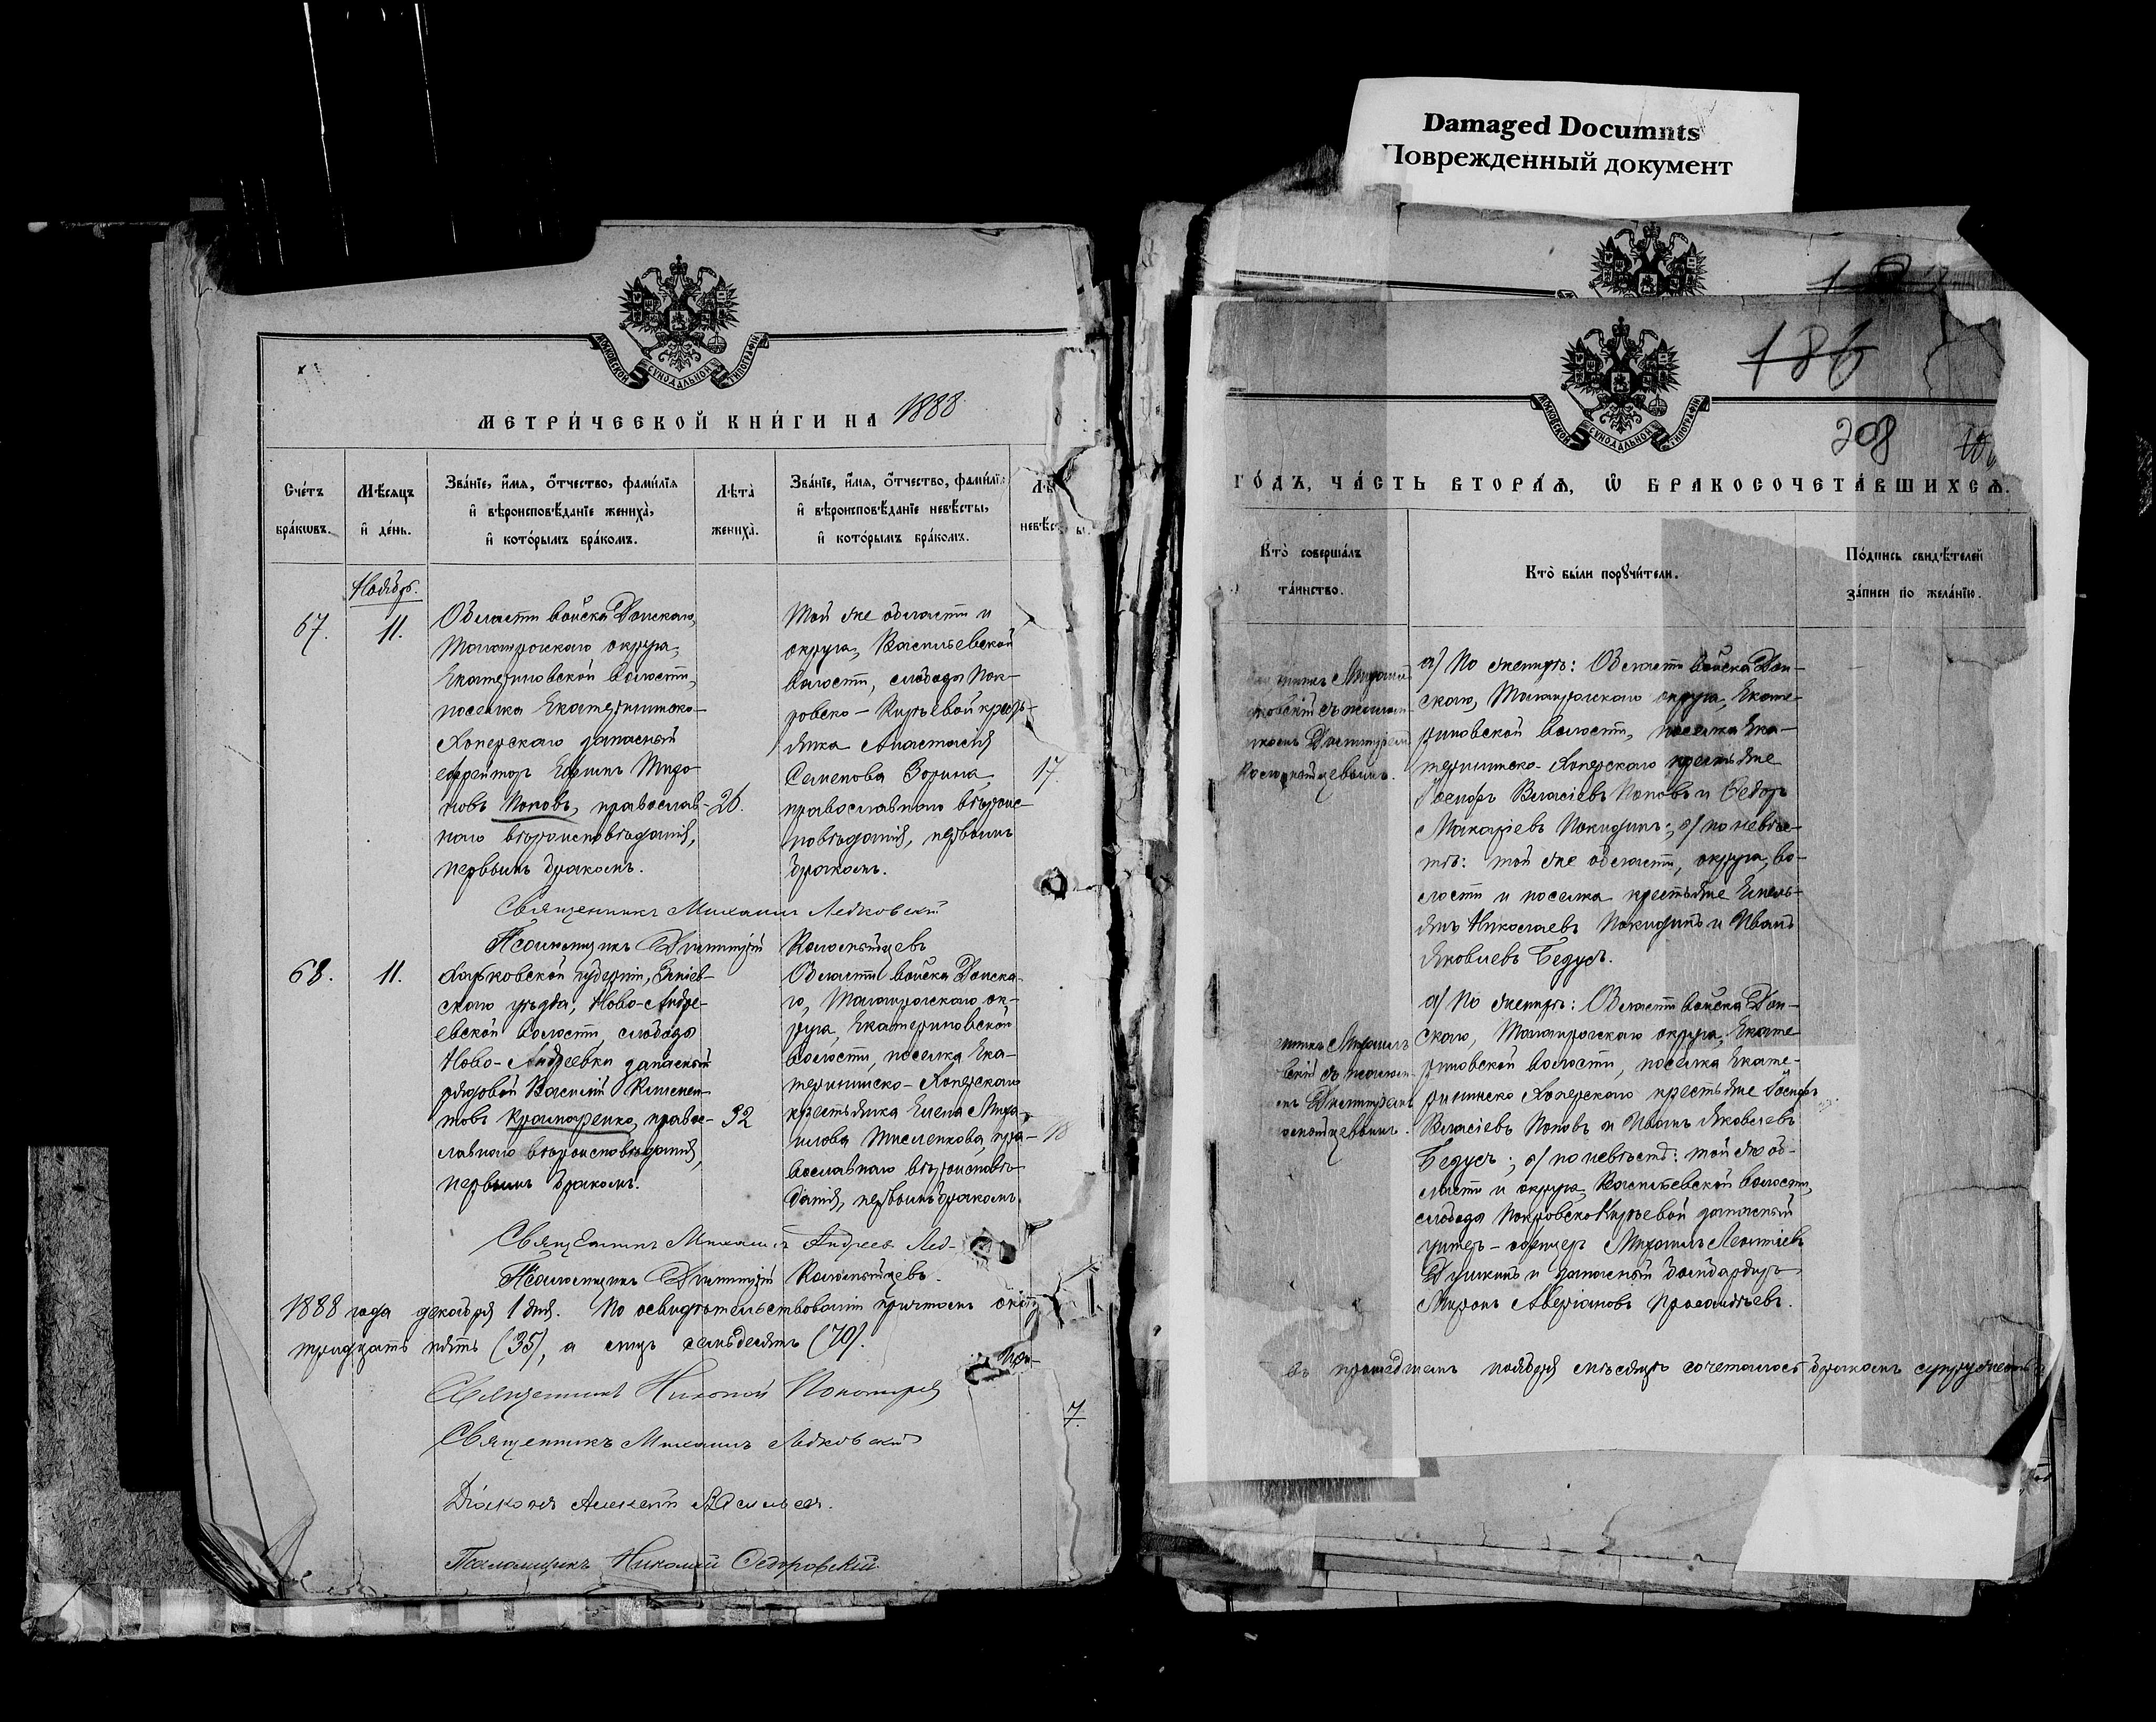 Damaged Documnts
Поврежденный документ
МОСКОВСКОЙ СУНОДАЛЬНОЙ ТИПОГРАФІИ
МЕТРИ́ЧЕСКОЙ КНИ́ГИ НА 1888
Сче́тъ бра́кωвъ.
Мѣ́сяцъ и҆ де́нь.
Зва́нїе, и҆́мя, ѻ҆́тчество, фами́лїя
и҆ вѣроисповѣ́данїе жениха̀,
и҆ кото́рымъ бра́комъ.
Лѣта̀ жениха̀.
Зва́нїе, и҆́мя, ѻ҆́тчество, фами́лїя
и҆ вѣроисповѣ́данїе невѣ́сты,
и҆ кото́рымъ бра́комъ.
Ноябрь.
67.
11.
Области войска Донскаго,
Таганрогскаго округа,
Екатериновской волости,
поселка Екатерининско-
Хоперскаго запасный
ефрейторъ
новъ Поповъ, православ-
наго вѣроисповѣданія,
первымъ бракомъ.
26.
Той же области и
округа, Васильевской
волости, слободы Пок-
ровско-Кирѣевой кресть-
янка Анастасія
Семенова Зорина,
православнаго вѣроис-
повѣданія, первымъ
бракомъ.
17.
Священникъ Михаилъ Ледковскій
Псаломщикъ Димитрій Колоснятцевъ
68.
11.
Харьковской губерніи, Зміев-
скаго уѣзда, Ново-Андре-
евской волости, слободы
Ново-Андреевки запасный
рядовой Василій Климен-
товъ Крамаренко, право-
славнаго вѣроисповѣданія,
первымъ бракомъ.
32
Области войска Донска-
го, Таганрогскаго ок-
руга, Екатериновской
волости, поселка Ека-
терининско-Хоперскаго
крестьянка Елена Миха-
илова Тисленкова, пра-
вославнаго вѣроисповѣ-
данія, первымъ бракомъ.
18
Священникъ Михаилъ Андреев Лед-
Псаломщикъ Димитрій Колоснятцевъ.
1888 года декабря 1 дня. По освидѣтельствованіи причтомъ
тридцать пять (35), а лицъ семьдесятъ (70).
Священникъ Николай Пономарев
Священникъ Михаилъ Ледковскій
Діаконъ Алексей Васильев.
Псаломщикъ Николай Федоровскій
7.
МОСКОВСКОЙ СУНОДАЛЬНОЙ ТИПОГРАФІИ
186
208
ГО́ДЪ, ЧА́СТЬ ВТОРА́Я, Ѡ҆ БРАКОСОЧЕТА́ВШИХСЯ.
Кто̀ соверша́лъ
та́инство.
Кто̀ бы́ли порꙋчи́тели.
По́дпись свидѣ́телей
за́писи по жела́нїю.
Михаилъ
Димитріемъ
а) По женихѣ: Области войска Дон-
скаго, Таганрогскаго округа, Екате-
риновской волости, поселка Ека-
терининско-Хоперскаго крестьяне
Іосифъ Власіевъ Поповъ и Ѳедоръ
Макаріевъ Покидинъ; б) по невѣс-
тѣ: той же области, округа, во-
лости и поселка крестьяне Емель-
янъ Николаевъ Покидинъ и Иванъ
Яковлевъ Бедусъ.
Михаилъ
Димитріемъ
а) По женихѣ: Области войска Дон-
скаго, Таганрогскаго округа, Екате-
риновской волости, поселка Екате-
рининско Хоперскаго крестьяне Іосифъ
Власіевъ Поповъ и Иванъ Яковлевъ
Бедусъ; б) по невѣстѣ: той же об-
ласти и округа, Васильевской волости,
слободы Покровско Кирѣевой запасный
унтеръ-офицеръ Михаилъ Леонтіевъ
и запасный бомбардиръ
Миронъ Аверіановъ
въ прошедшемъ ноябрѣ мѣсяцѣ сочеталось бракомъ